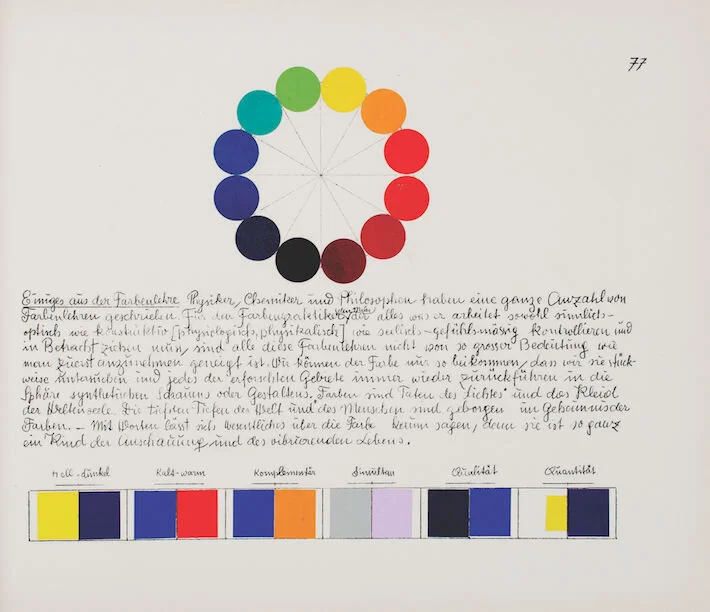 77
Einiges aus der Farbenlehre Physiker, Chemiker und Philosophen haben eine ganze Anzahl von
Farbenlehren geschrieben. Für den Farbengestalter der alles was er arbeitet sowohl sinnlich-
optisch wie konstruktiv [physiologisch, physikalisch] wie seelisch-gefühlsmässig kontrollieren und
in Betracht ziehen muss, sind alle diese Farbenlehren nicht von so grosser Bedeutung wie
man zuerst anzunehmen geneigt ist. Wir können der Farbe nur so beikommen, dass wir sie stück-
weise untersuchen und jedes der erforschten Gebiete immer wieder zurückführen in die
Sphäre synthetischen Schauens oder Gestaltens. Farben sind Taten des Lichtes und das Kleid
der Weltenseele. Die tiefsten Tiefen der Welt und des Menschen sind geborgen im Geheimnis der
Farben. – Mit Worten lässt sich wesentliches über die Farbe kaum sagen, denn sie ist so ganz
ein Kind der Anschauung und des vibrierenden Lebens.
Hell-dunkel Kalt-warm Komplementär Simultan Qualität Quantität